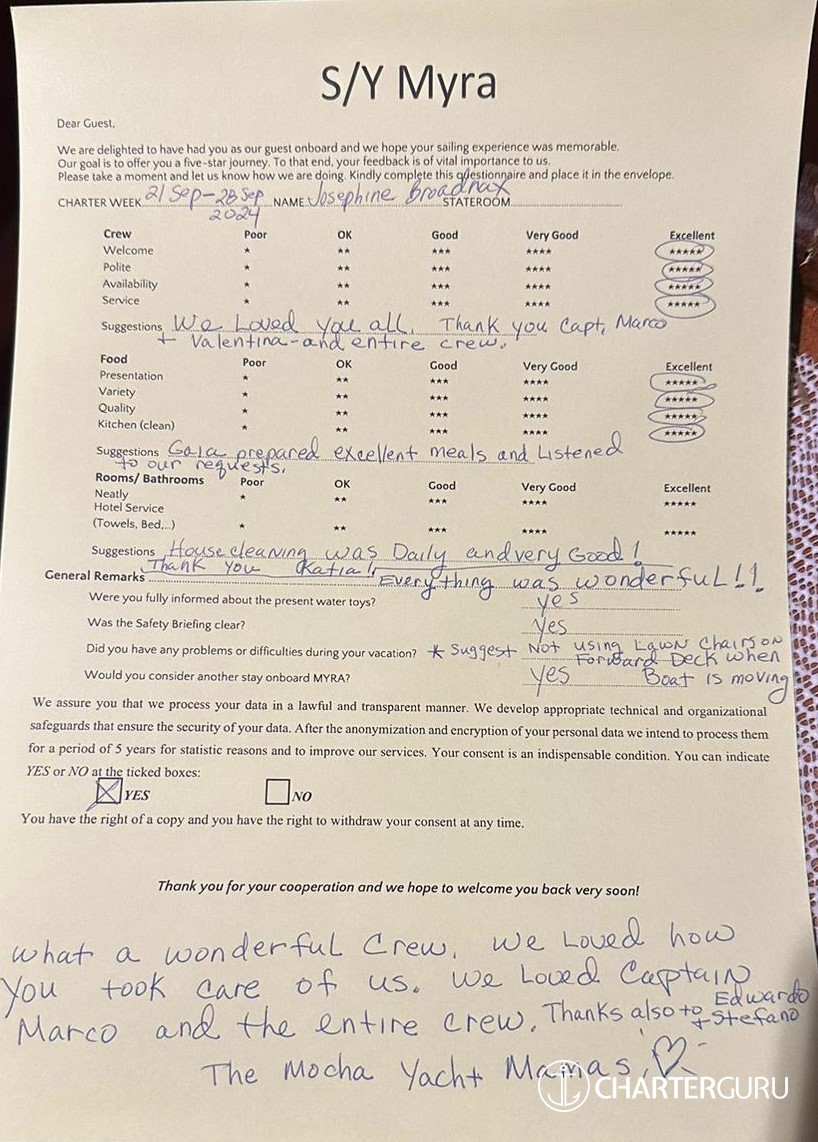 S/Y Myra
Dear Guest,
We are delighted to have had you as our guest onboard and we hope your sailing experience was memorable.
Our goal is to offer you a five-star journey. To that end, your feedback is of vital importance to us.
Please take a moment and let us know how we are doing. Kindly complete this questionnaire and place it in the envelope.
CHARTER WEEK 21 Sep - 28 Sep 2024 NAME Josephine Broadnax STATEROOM
Crew Poor OK Good Very Good Excellent
Welcome * ** *** **** *****
Polite * ** *** **** *****
Availability * ** *** **** *****
Service * ** *** **** *****
Suggestions We Loved you all. Thank you Capt, Marco
+ Valentina - and entire crew.
Food Poor OK Good Very Good Excellent
Presentation * ** *** **** *****
Variety * ** *** **** *****
Quality * ** *** **** *****
Kitchen (clean) * ** *** **** *****
Suggestions Gaia prepared excellent meals and Listened
to our requests.
Rooms/ Bathrooms Poor OK Good Very Good Excellent
Neatly * ** *** **** *****
Hotel Service
(Towels, Bed,...) * ** *** **** *****
Suggestions Housecleaning was Daily and very Good!
Thank you Katia!
General Remarks Everything was wonderful!!!
Were you fully informed about the present water toys? yes
Was the Safety Briefing clear? Yes
Did you have any problems or difficulties during your vacation? * Suggest Not using Lawn Chairs on
Forward Deck when
Would you consider another stay onboard MYRA? Yes Boat is moving
We assure you that we process your data in a lawful and transparent manner. We develop appropriate technical and organizational
safeguards that ensure the security of your data. After the anonymization and encryption of your personal data we intend to process them
for a period of 5 years for statistic reasons and to improve our services. Your consent is an indispensable condition. You can indicate
YES or NO at the ticked boxes:
YES NO
You have the right of a copy and you have the right to withdraw your consent at any time.
Thank you for your cooperation and we hope to welcome you back very soon!
What a wonderful Crew. We Loved how
You took care of us. We Loved Captain
Marco and the entire crew. Thanks also to Edwardo
+ Stefano
The Mocha Yacht Mamas!
CHARTERGURU